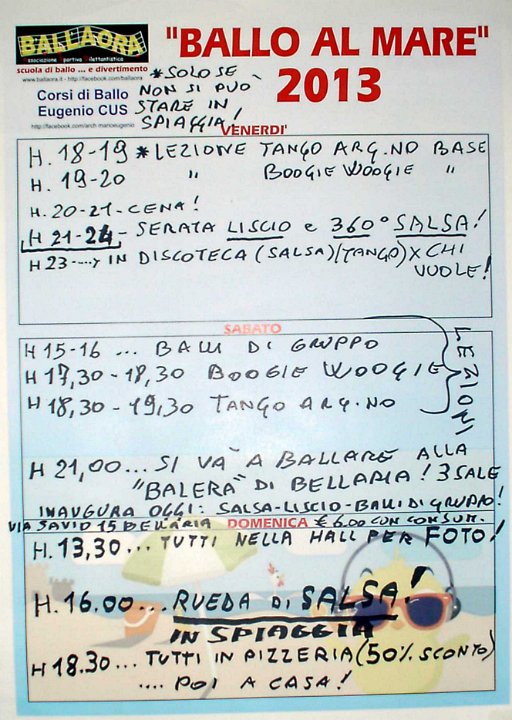 BALLAORA
associazione Sportiva Dilettantistica
scuola di ballo ... e divertimento
www.ballaora.it - http://facebook.com/ballaora
Corsi di Ballo
Eugenio CUS
"BALLO AL MARE"
2013
*SOLO SE
NON SI PUO'
STARE IN
SPIAGGIA!
VENERDI'
H. 18-19 *LEZIONE TANGO ARG.NO BASE
H. 19-20 " BOOGIE WOOGIE "
H. 20-21 - CENA!
H 21-24 - SERATA LISCIO e 360° SALSA!
H 23 ----> IN DISCOTECA (SALSA)(TANGO) X CHI
VUOLE!
SABATO
H 15-16 ... BALLI DI GRUPPO
H 17,30 - 18,30 BOOGIE WOOGIE
H 18,30 - 19,30 TANGO ARG.NO
LEZIONI
H 21,00 ... SI VA' A BALLARE ALLA
"BALERA" DI BELLARIA! 3 SALE
INAUGURA OGGI: SALSA-LISCIO-BALLI DI GRUPPO!
VIA SAVIO 15 BELLARIA
DOMENICA
€ 6,00 CON CONSUM.
H. 13,30 ... TUTTI NELLA HALL PER FOTO!
H. 16.00 ... RUEDA DI SALSA!
IN SPIAGGIA
H 18.30 ... TUTTI IN PIZZERIA (50% SCONTO)
.... POI A CASA!